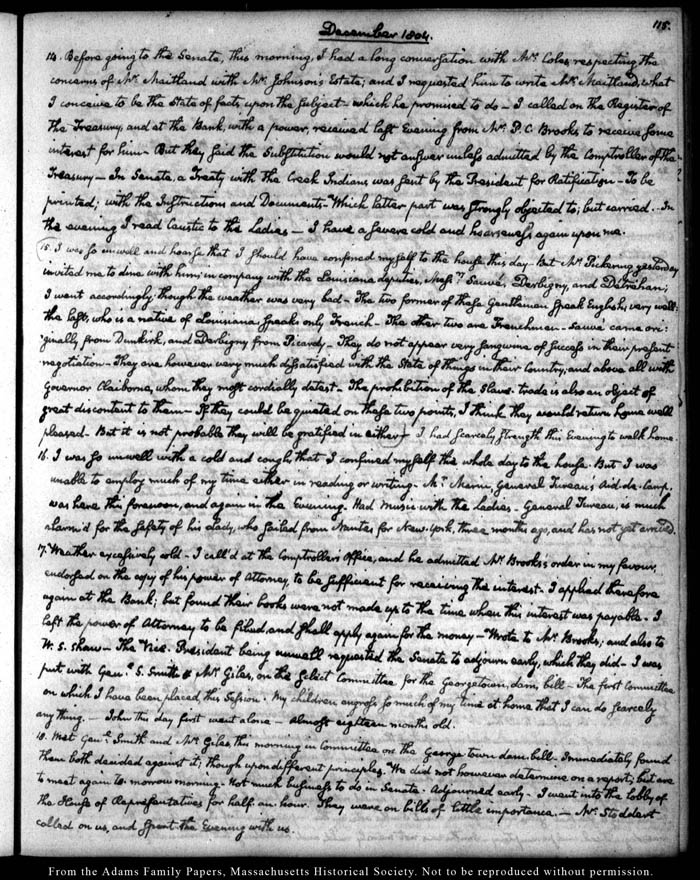 December 1804.
115.
14. Before going to the Senate, this morning, I had a long conversation with Mr. Coles, respecting the
concerns of Mr. Maitland with Mr. Johnson's Estate; and I requested him to write Mr. Maitland, what
I conceive to be the State of facts upon the subject - which he promised to do - I called on the Register of
the Treasury, and at the Bank, with a power, received last Evening from Mr. P. C. Brooks to receive some
interest for him - But they said the Substitution would not answer unless admitted by the Comptroller of the
Treasury - In Senate, a Treaty with the Creek Indians, was sent by the President for Ratification - To be
printed; with the Instructions and Documents - Which latter part was strongly objected to; but carried. - In
the evening I read Caustic to the Ladies - I have a severe cold and hoarseness again upon me.
15. I was so unwell and hoarse that I should have confined myself to the house this day - But Mr. Pickering yesterday
invited me to dine with him; in company with the Louisiana deputies, Messrs. Sauvé, Derbigny, and Détréhan;
I went accordingly though the weather was very bad - The two former of these Gentlemen speak English, very well;
the last, who is a native of Louisiana speaks only French - The other two are Frenchmen - Sauvé came ori-
ginally from Dunkirk, and Derbigny from Picardy - They do not appear very sanguine of success in their present
negotiation - They are however very much dissatisfied with the State of things in their Country, and above all with
Governor Claiborne, whom they most cordially detest - The prohibition of the Slave-trade is also an object of
great discontent to them - If they could be quieted on these two points, I think they would return home well
pleased - But it is not probable they will be gratified in either - I had scarcely strength this Evening to walk home.
16. I was so unwell with a cold and cough, that I confined myself the whole day to the house. But I was
unable to employ much of my time either in reading or writing - Mr. General Tureau's Aid-de-Camp,
was here this forenoon, and again in the Evening. Had Music with the Ladies - General Tureau, is much
alarm'd for the safety of his Lady, who sailed from Nantes for New-York, three months ago, and has not yet arrived.
17. Weather excessively cold - I call'd at the Comptroller's Office, and he admitted Mr. Brooks's order in my favour,
endorsed on the copy of his power of Attorney, to be sufficient for receiving the interest - I applied therefore
again at the Bank; but found their books were not made up to the time when this interest was payable - I
left the power of Attorney to be filed, and shall apply again for the money - Wrote to Mr. Brooks; and also to
W. S. Shaw - The Vice-President being unwell requested the Senate to adjourn early, which they did - I was
put with Genl. S. Smith & Mr. Giles, on the Select Committee for the Georgetown, dam bill - The first Committee
on which I have been placed this Session. My children engross so much of my time at home that I can do scarcely
any thing. - John this day first went alone - Almost eighteen months old.
18. Met Genl. Smith and Mr. Giles this morning in Committee on the George town dam bill - Immediately found
them both decided against it; though upon different principles. We did not however determine on a report; but are
to meet again to-morrow morning - Not much business to do in Senate - Adjourned early - I went into the lobby of
the House of Representatives for half an hour. They were on bills of little importance. - Mr. Stoddert
called on us, and spent the Evening with us.
From the Adams Family Papers, Massachusetts Historical Society. Not to be reproduced without permission.